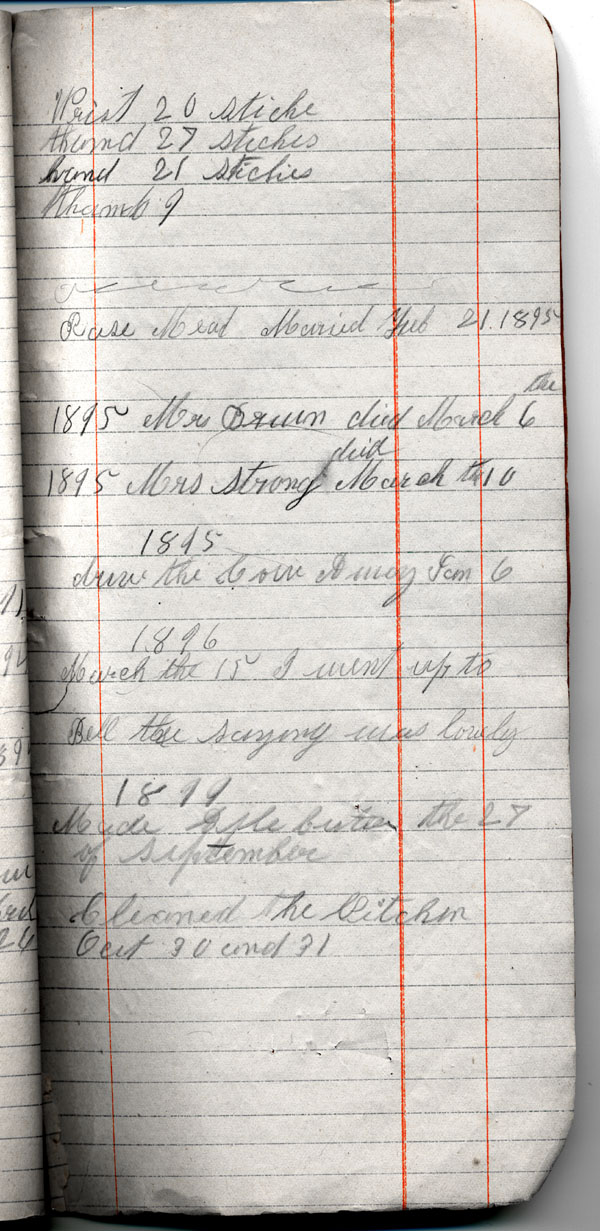 Wrist 20 stiche
thumd 27 stiches
hand 21 stiches
thumb 9
Rose Mead Maried Feb 21. 1895
the
1895 Mrs died March 6
died
1895 Mrs Strong March the 10
1895
druv the Cow Away Jan 6
1896
March the 15 I went up to
Bell the saying was lovely
1899
Made the 27
of September
Cleaned the Citchen
Oct 30 and 31